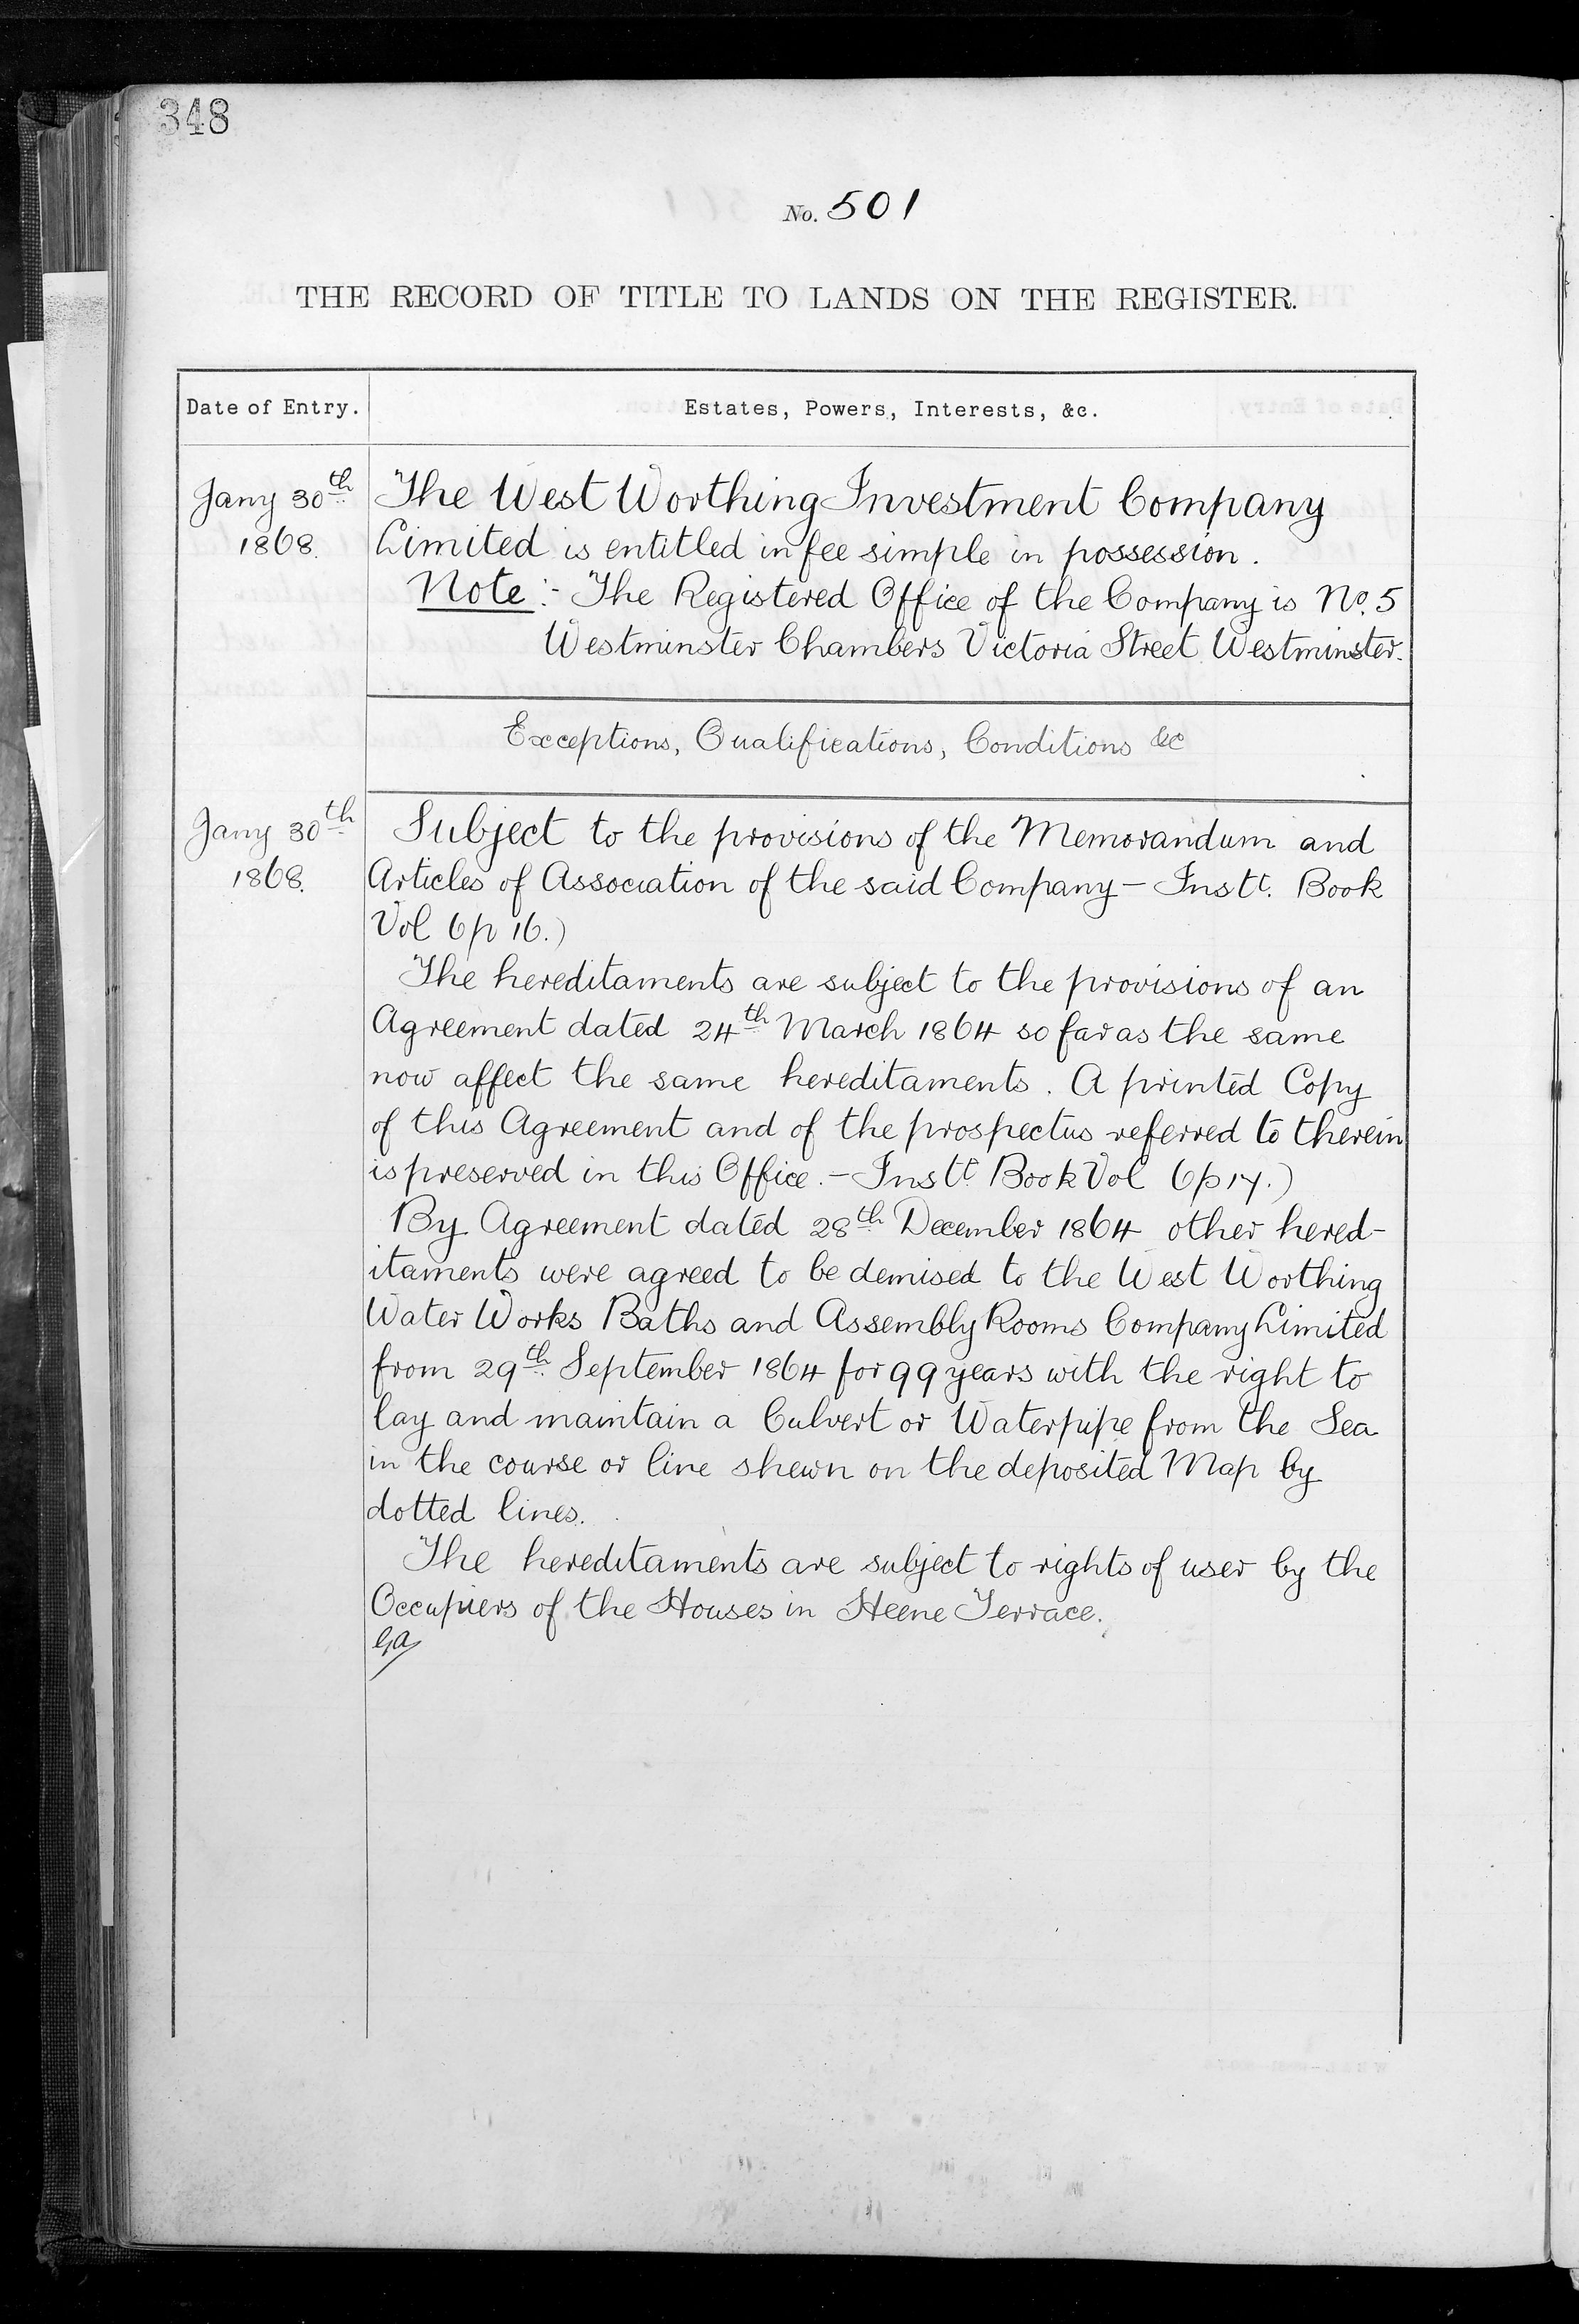 348
No. 501
THE RECORD OF TITLE TO LANDS ON THE REGISTER.
Date of Entry. Estates, Powers, Interests, &c.
Jany 30th The West Worthing Investment Company
1868. Limited is entitled in fee simple in possession.
Note:- The Registered Office of the Company is No. 5
Westminster Chambers Victoria Street Westminster.
Exceptions, Qualifications, Conditions &c
Jany 30th Subject to the provisions of the Memorandum and
1868. Articles of Association of the said Company - Instt. Book
Vol 6 p 16.)
The hereditaments are subject to the provisions of an
Agreement dated 24th March 1864 so far as the same
now affect the same hereditaments. A printed Copy
of this Agreement and of the prospectus referred to therein
is preserved in this Office. - Instt. Book Vol 6 p 17.)
By Agreement dated 28th December 1864 other hered-
itaments were agreed to be demised to the West Worthing
Water Works Baths and Assembly Rooms Company Limited
from 29th September 1864 for 99 years with the right to
lay and maintain a Culvert or Waterpipe from the Sea
in the course or line shewn on the deposited Map by
dotted lines.
The hereditaments are subject to rights of user by the
Occupiers of the Houses in Heene Terrace.